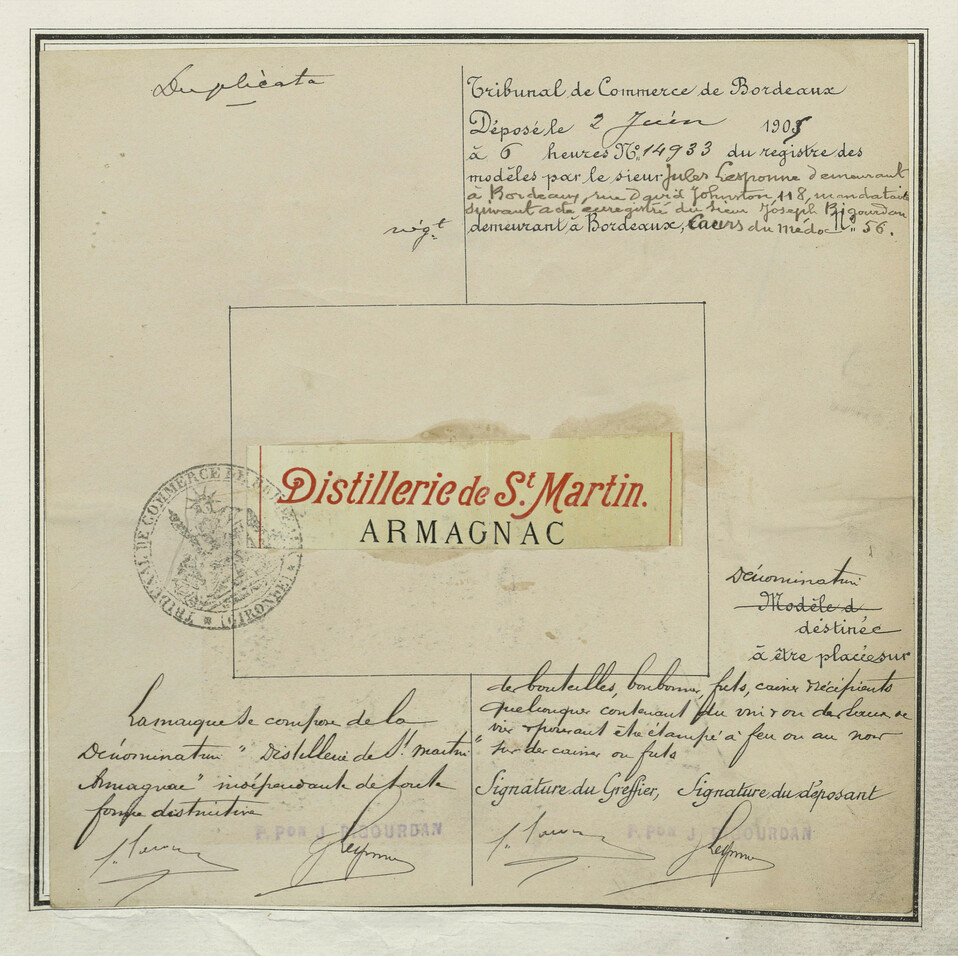 Duplicata
Tribunal de Commerce de Bordeaux
Déposé le 2 Juin 1905
à 6 heures No. 14933 du registre des
modèles par le sieur Jules Lesponne demeurant
à Bordeaux, rue David Johnston 118, mandataire
suivant acte enregistré du sieur Joseph Bigourdan
négt
demeurant à Bordeaux, Cours du Médoc No 56.
Distillerie de St. Martin.
ARMAGNAC
TRIBUNAL DE COMMERCE DE (GIRONDE)
Dénomination
Modèle d
destinée
à être placée sur
des bouteilles, bonbonnes, futs, caisses récipients
quelconques contenant du vin ou des eaux de
vie & pouvant être étampé à feu ou au noir
sur des caisses ou futs
La marque se compose de la
Dénomination "Distillerie de St. Martin
Armagnac" indépendante de toute
forme distinctive
Signature du Greffier, Signature du déposant
P. Pon J. BIGOURDAN
P. Pon J. BIGOURDAN